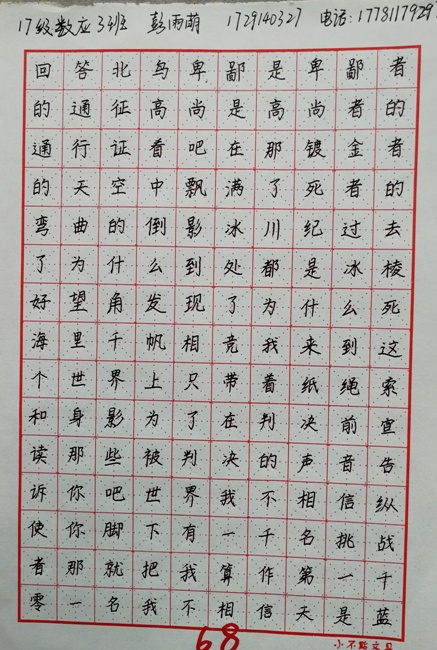 17级数应3班 彭雨萌 1729140327 电话:1778117929
回答北鸟卑鄙是卑鄙者
的通征高尚是高尚者的
通行证看吧在那镀金者
的天空中飘满了死者的
弯曲的倒影冰川纪过去
了为什么到处都是冰棱
好望角发现了为什么死
海里千帆相竞我来到这
个世界上只带着纸绳索
和身影为了在判决前宣
读那些被判决的声音告
诉你吧世界我不相信纵
使你脚下有一千名挑战
者那就把我算作第一千
零一名我不相信天是蓝
68
小不點文具